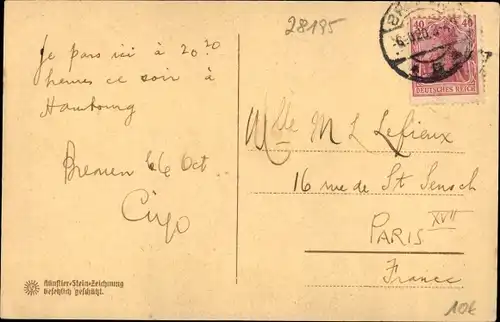 28195
Je pars ici à 20 20
heures ce soir à
Hambourg
Bremen le 6 Oct
40 40
DEUTSCHES REICH
Mlle M L Lefieux
16 rue de St Senoch
PARIS XVII
France
Künstler-Stein-Zeichnung
Gesetzlich geschützt.
10€